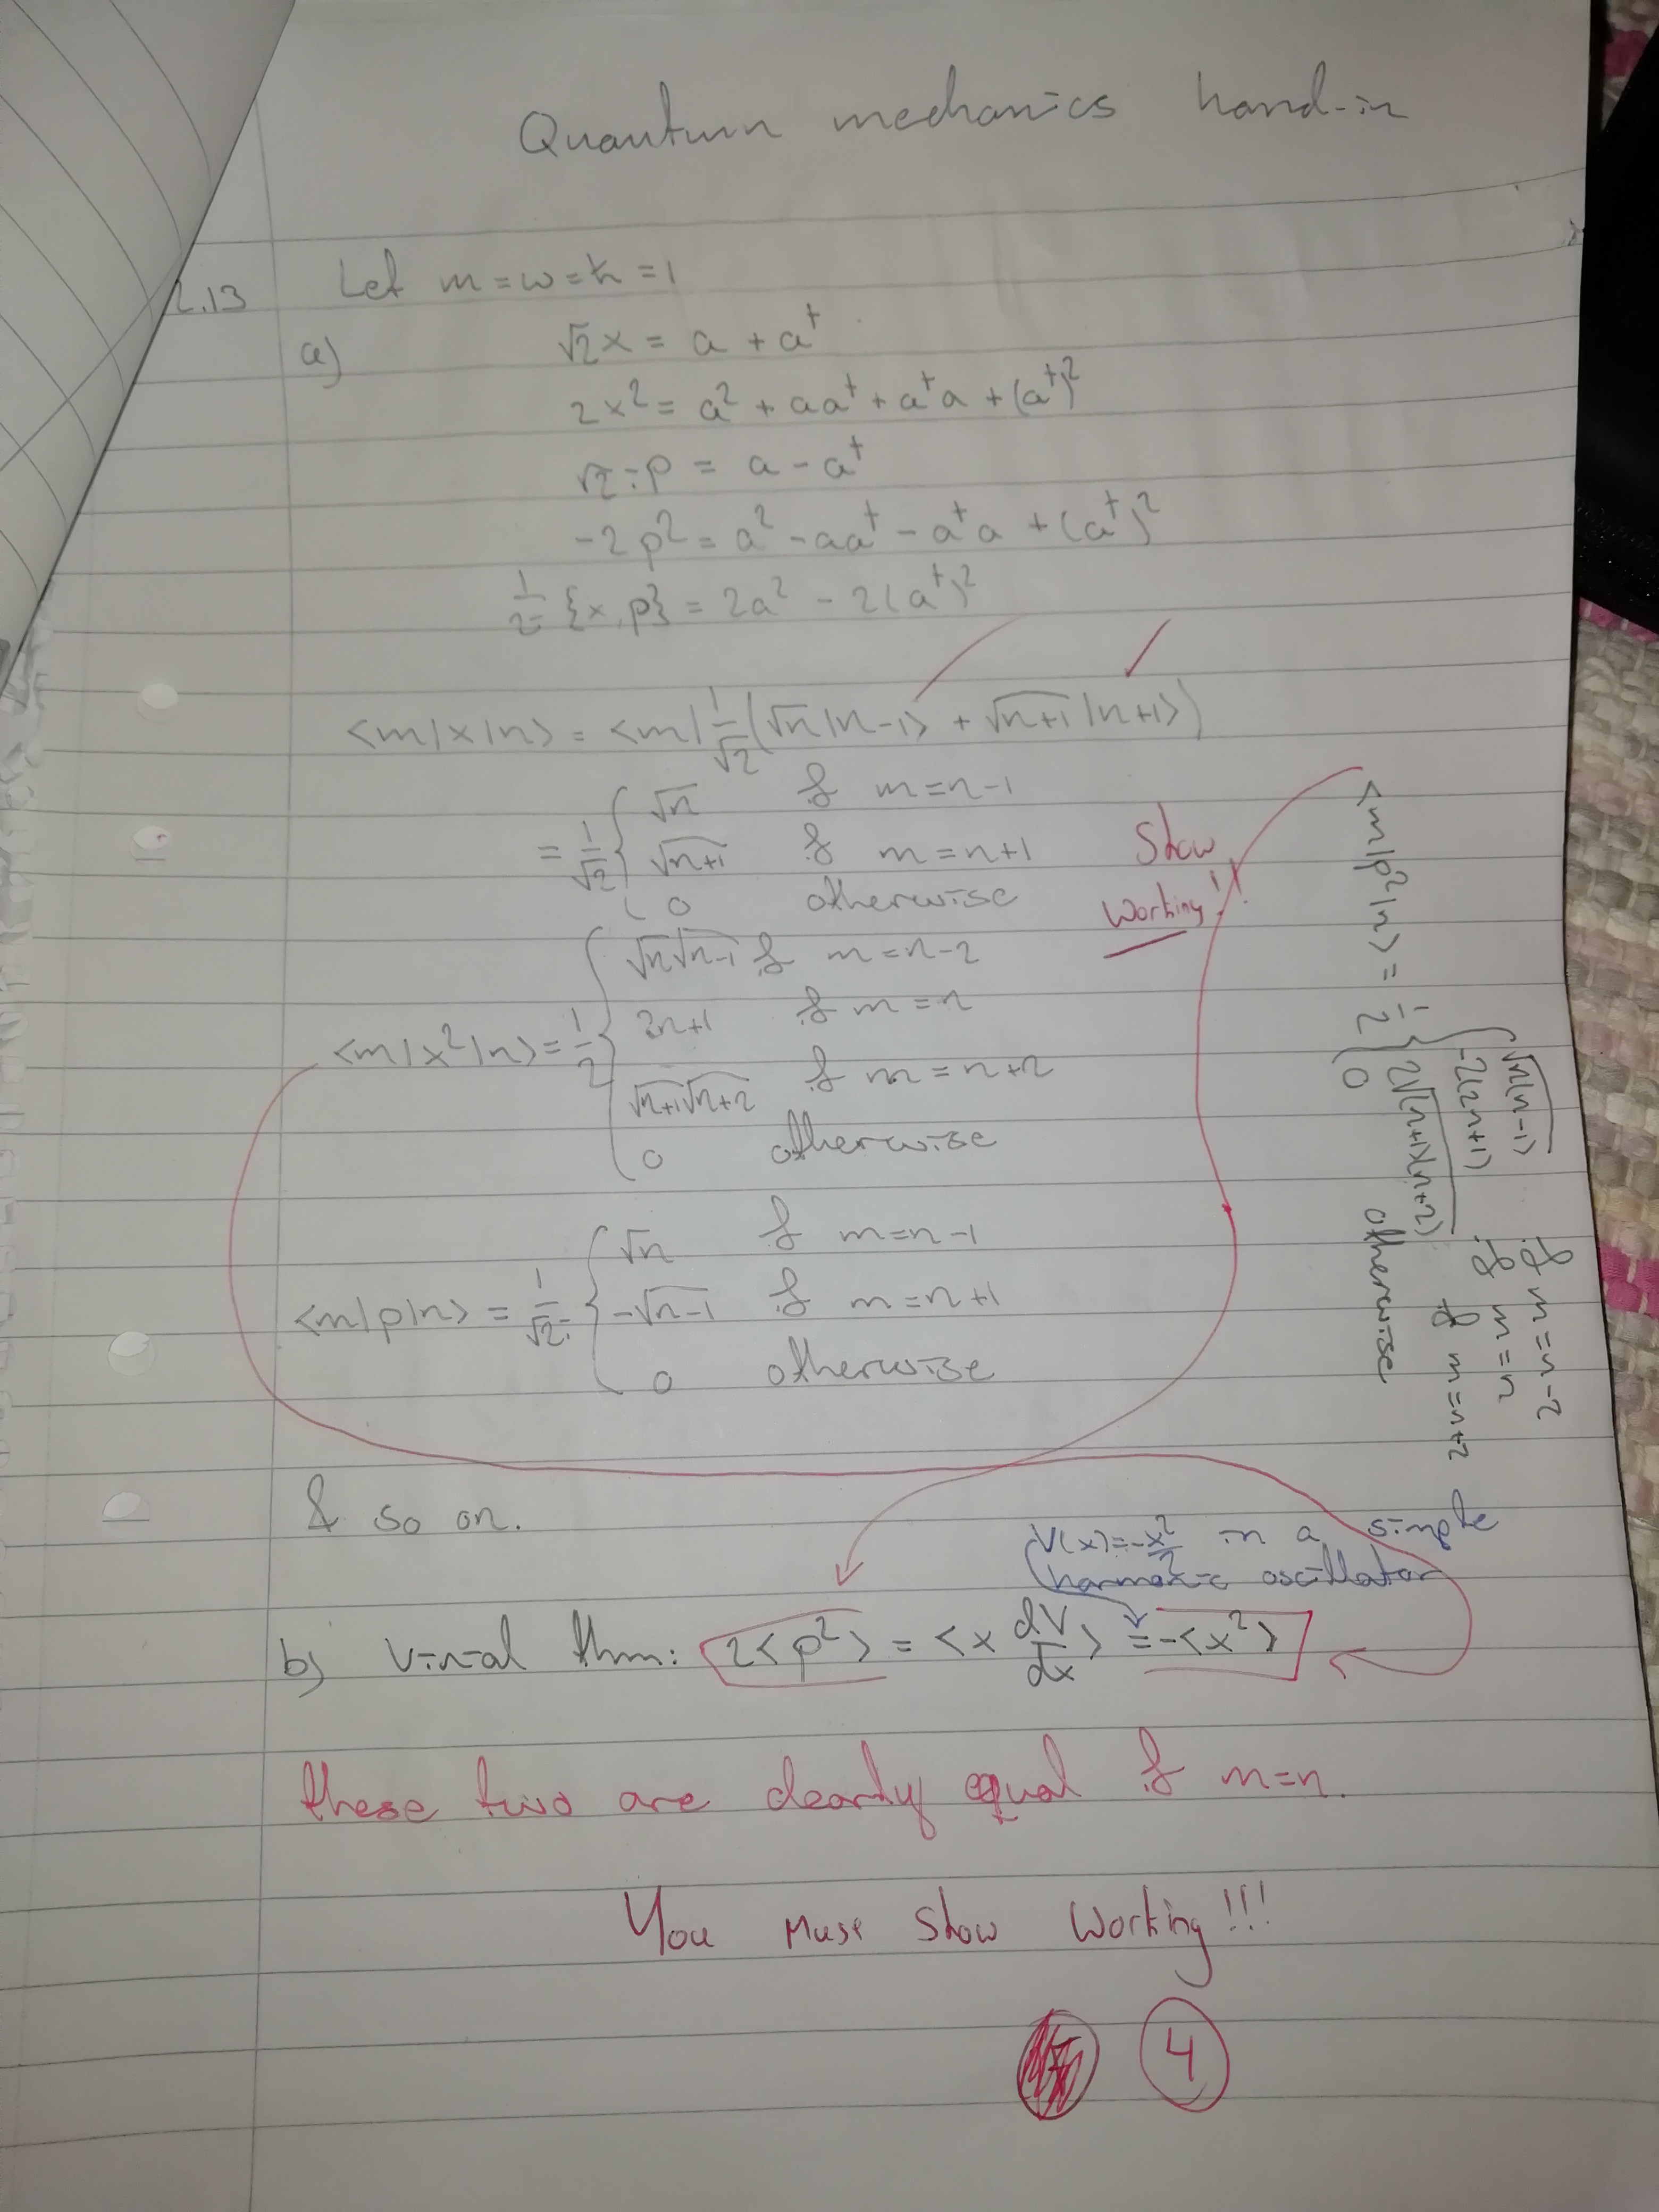 Quantum mechanics hand-in
2.13 Let m=ω=ħ=1
a) √2x = a + a†
2x² = a² + aa† + a†a + (a†)²
√2ip = a - a†
-2p² = a² - aa† - a†a + (a†)²
1/2i {x,p} = 2a² - 2(a†)²
<m|x|n> = <m| 1/√2 (√n|n-1> + √n+1|n+1>)
= 1/√2 { √n if m=n-1
√n+1 if m=n+1
0 otherwise
Show
Working!!
<m|x²|n> = 1/2 { √n√n-1 if m=n-2
2n+1 if m=n
√n+1√n+2 if m=n+2
0 otherwise
<m|p|n> = 1/√2i { √n if m=n-1
-√n-1 if m=n+1
0 otherwise
<m|p²|n> = 1/2 { √n(n-1) if m=n-2
-2(2n+1) if m=n
2√(n+1)(n+2) if m=n+2
0 otherwise
& so on.
V(x)=-x²/2 in a simple
harmonic oscillator
b) Virial thm: 2<p²> = <x dV/dx> = -<x²>
these two are clearly equal if m=n.
You Must Show Working!!!
4